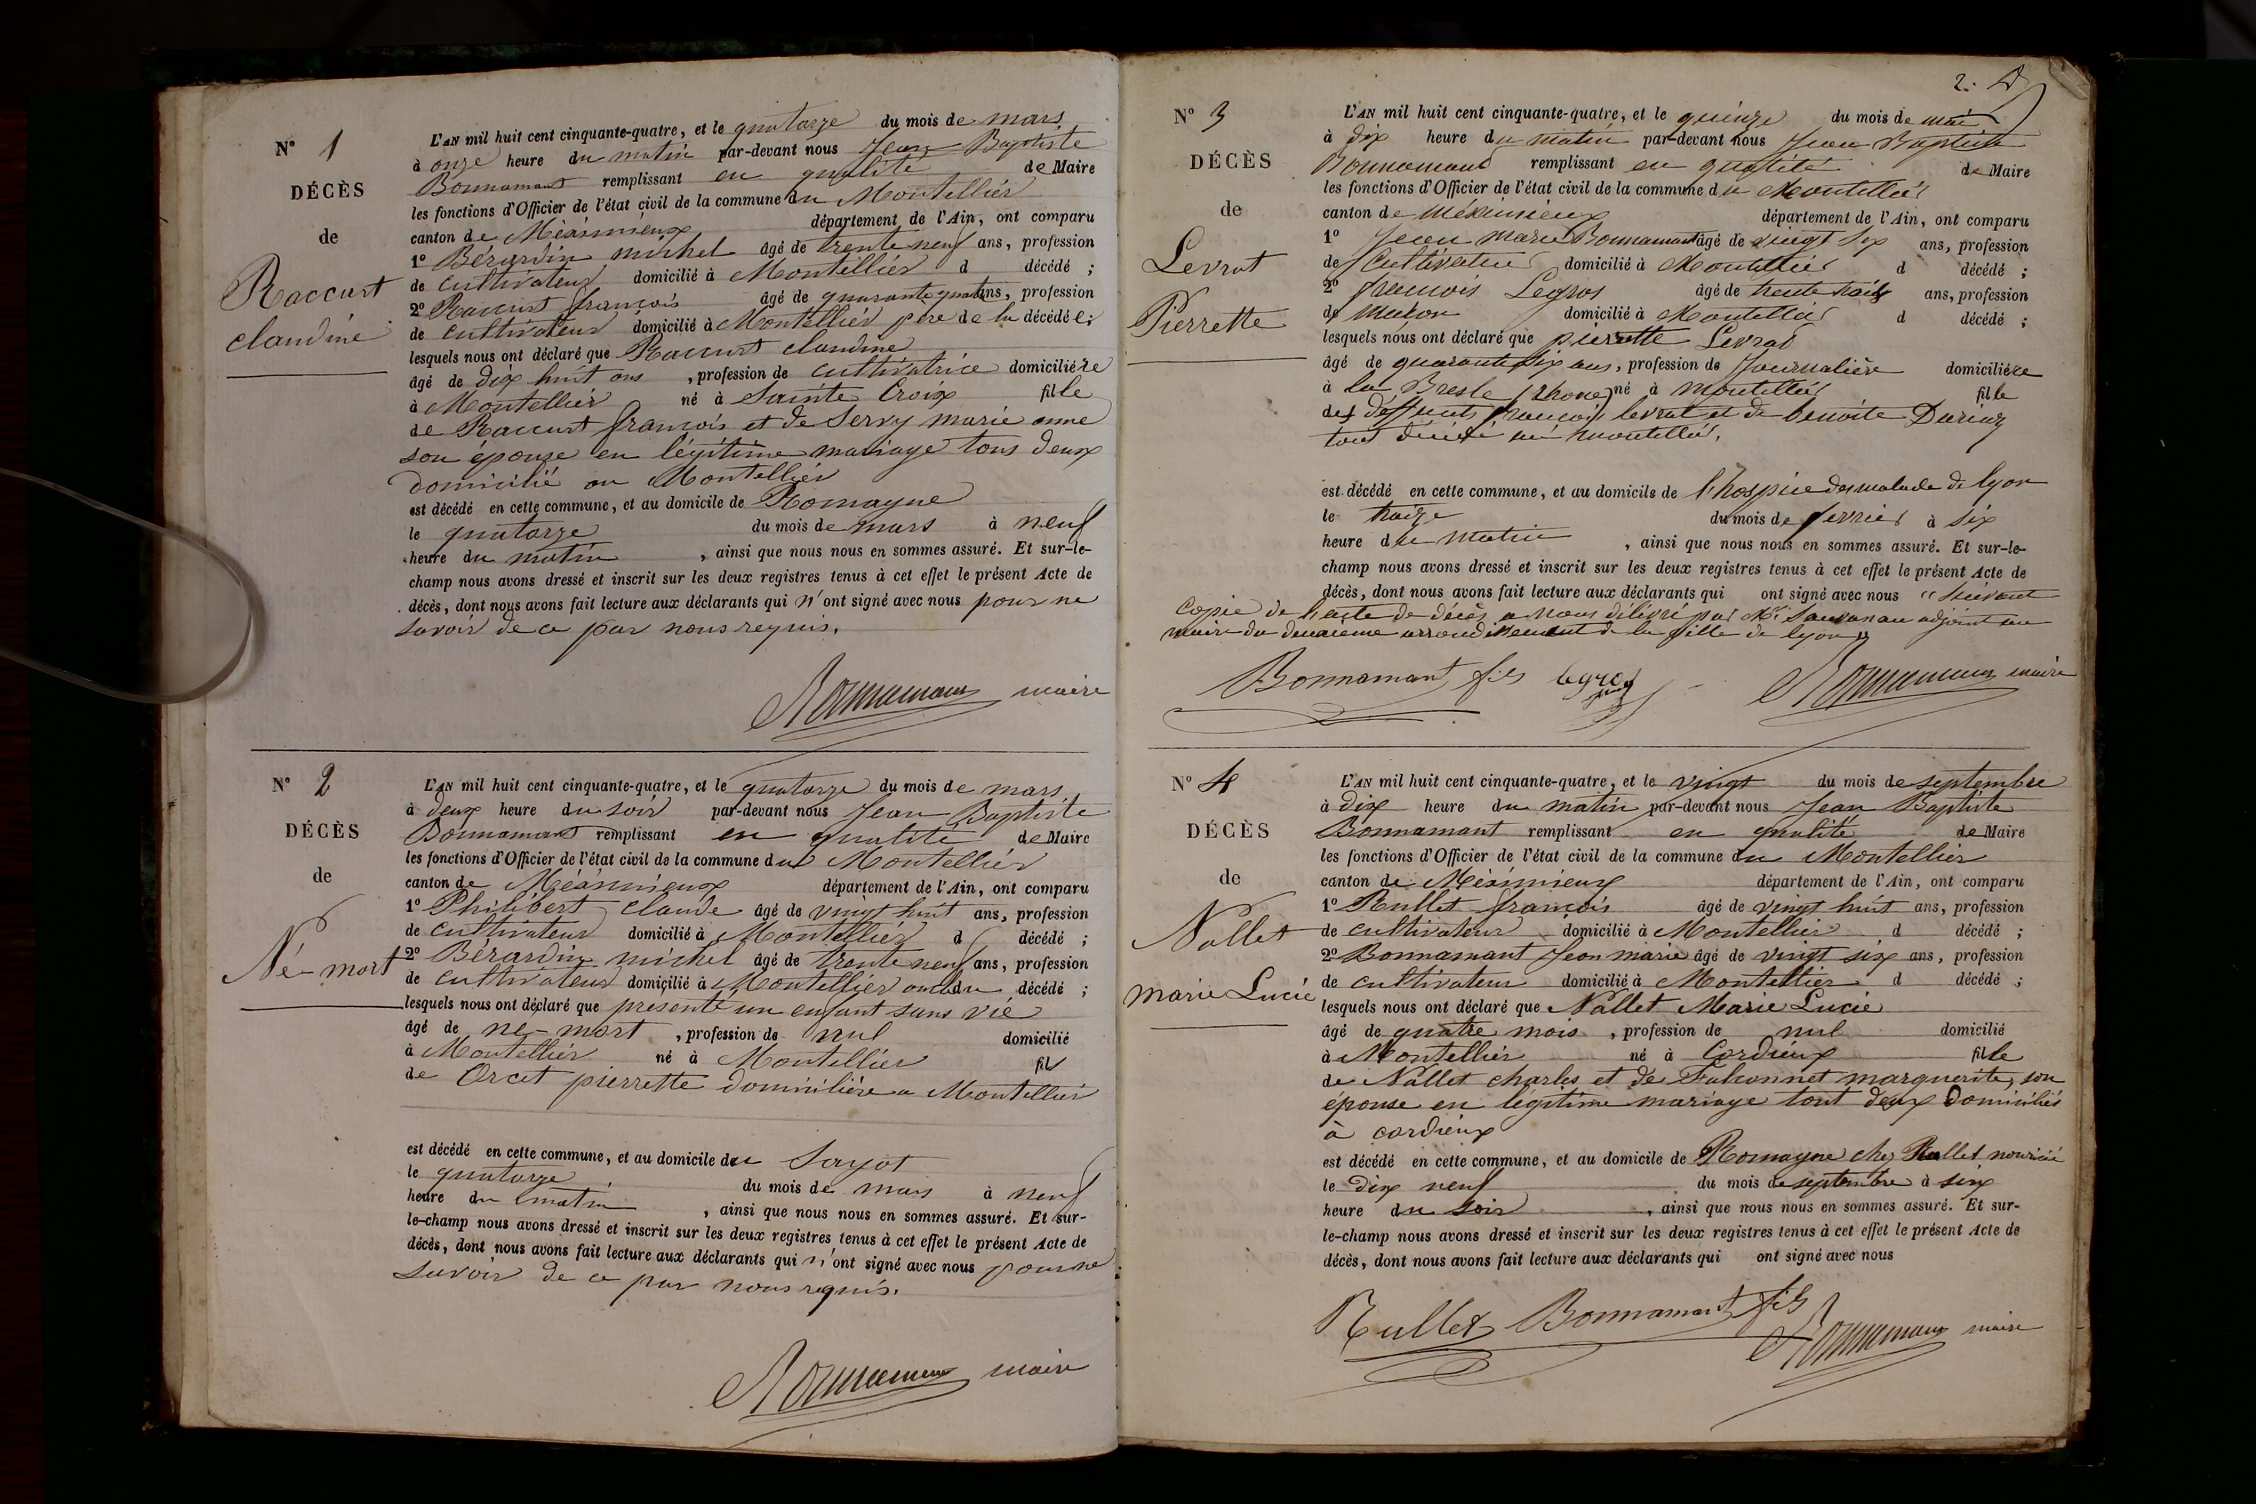 N° 1
DÉCÈS
de
Raccurt
claudine
L'AN mil huit cent cinquante-quatre, et le quatorze du mois de mars
à onze heure du matin par-devant nous Jean Baptiste
Bonnamant remplissant en qualité de Maire
les fonctions d'Officier de l'état civil de la commune du Montellier
canton de Méximieux département de l'Ain, ont comparu
1° Bérardin michel âgé de trente neuf ans, profession
de cultivateur domicilié à Montellier d décédé ;
2° Raccurt françois âgé de quarante quatre ans, profession
de cultivateur domicilié à Montellier pere de la décédée;
lesquels nous ont déclaré que Raccurt claudine
âgé de dix huit ans, profession de cultivatrice domiciliére
à Montellier né à Sainte Croix fille
de Raccurt françois et de Servy marie anne
son épouse en légitime mariage tous deux
domicilié au Montellier
est décédé en cette commune, et au domicile de Romagne
le quatorze du mois de mars à neuf
heure du matin, ainsi que nous nous en sommes assuré. Et sur-le-
champ nous avons dressé et inscrit sur les deux registres tenus à cet effet le présent Acte de
décès, dont nous avons fait lecture aux déclarants qui n'ont signé avec nous pour ne
savoir de ce par nous requis.
Bonnamant maire
N° 2
DÉCÈS
de
Né-mort
L'AN mil huit cent cinquante-quatre, et le quatorze du mois de mars
à deux heure du soir par-devant nous Jean Baptiste
Bonnamant remplissant en qualité de Maire
les fonctions d'Officier de l'état civil de la commune du Montellier
canton de Méximieux département de l'Ain, ont comparu
1° Philibert claude âgé de vingt huit ans, profession
de cultivateur domicilié à Montellier d décédé ;
2° Bérardin michel âgé de trente neuf ans, profession
de cultivateur domicilié à Montellier décédé ;
lesquels nous ont déclaré que presenté un enfant sans vie
âgé de né-mort, profession de nul domicilié
à Montellier né à Montellier fils
de Orcet pierrette domicilière a Montellier
est décédé en cette commune, et au domicile du Sayot
le quatorze du mois de mars à neuf
heure du matin, ainsi que nous nous en sommes assuré. Et sur-
le-champ nous avons dressé et inscrit sur les deux registres tenus à cet effet le présent Acte de
décès, dont nous avons fait lecture aux déclarants qui n'ont signé avec nous pour ne
savoir de ce par nous requis.
Bonnamant maire
2.
N° 3
DÉCÈS
de
Levrat
Pierrette
L'AN mil huit cent cinquante-quatre, et le quinze du mois de mai
à dix heure du matin par-devant nous Jean Baptiste
Bonnamant remplissant en qualité de Maire
les fonctions d'Officier de l'état civil de la commune du Montellier
canton de méximieux département de l'Ain, ont comparu
1° Jean marie Bonnamant âgé de vingt six ans, profession
de Cultivateur domicilié à Montellier d décédé ;
2° francois Legros âgé de trente trois ans, profession
de Macon domicilié à Montellier d décédé ;
lesquels nous ont déclaré que pierrette Levrat
âgé de quarante six ans, profession de Journalière domiciliére
à la Bresle (Rhone) né à montellier fille
des deffuncts francois levrat et de benoite Duriaz
tous décédé au montellier.
est décédé en cette commune, et au domicile de l'hospice des malade de lyon
le treize du mois de fevrier à six
heure du matin, ainsi que nous nous en sommes assuré. Et sur-le-
champ nous avons dressé et inscrit sur les deux registres tenus à cet effet le présent Acte de
décès, dont nous avons fait lecture aux déclarants qui ont signé avec nous " suivant
Copie de l'acte de décès a nous délivré par Mr. adjoint au
maire du deuxieme arrondissement de la ville de lyon "
Bonnamant fils legros Bonnamant maire
N° 4
DÉCÈS
de
Nallet
marie Lucie
L'AN mil huit cent cinquante-quatre, et le vingt du mois de septembre
à dix heure du matin par-devant nous Jean Baptiste
Bonnamant remplissant en qualité de Maire
les fonctions d'Officier de l'état civil de la commune du Montellier
canton de Méximieux département de l'Ain, ont comparu
1° Rullet françois âgé de vingt huit ans, profession
de cultivateur domicilié à Montellier d décédé ;
2° Bonnamant Jean marie âgé de vingt six ans, profession
de cultivateur domicilié à Montellier d décédé ;
lesquels nous ont déclaré que Nallet Marie Lucie
âgé de quatre mois, profession de nul domicilié
à Montellier né à Cordieux fille
de Nallet charles et de Falconnet marguerite, son
épouse en légitime mariage tout deux Domiciliés
à cordieux
est décédé en cette commune, et au domicile de Romagne chez Rullet nouricié
le dix neuf du mois de septembre à six
heure du soir, ainsi que nous nous en sommes assuré. Et sur-
le-champ nous avons dressé et inscrit sur les deux registres tenus à cet effet le présent Acte de
décès, dont nous avons fait lecture aux déclarants qui ont signé avec nous
Rullet Bonnamant fils Bonnamant maire